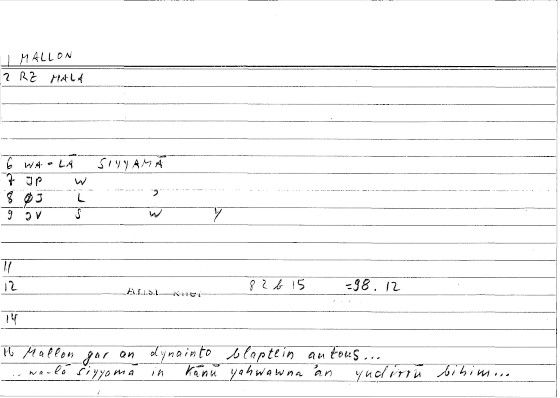 1 MALLON
2 RZ MALA
6 WA-LĀ SIYYAMĀ
7 JP W
8 ØJ L ʾ
9 JV S W Y
11
12 Arist Rhet 82b15 =98.12
14
16 Mallon gar an dynainto blaptein autous...
..wa-lā siyyamā in kānū yahwawna ʾan yuḍirrū bihim...